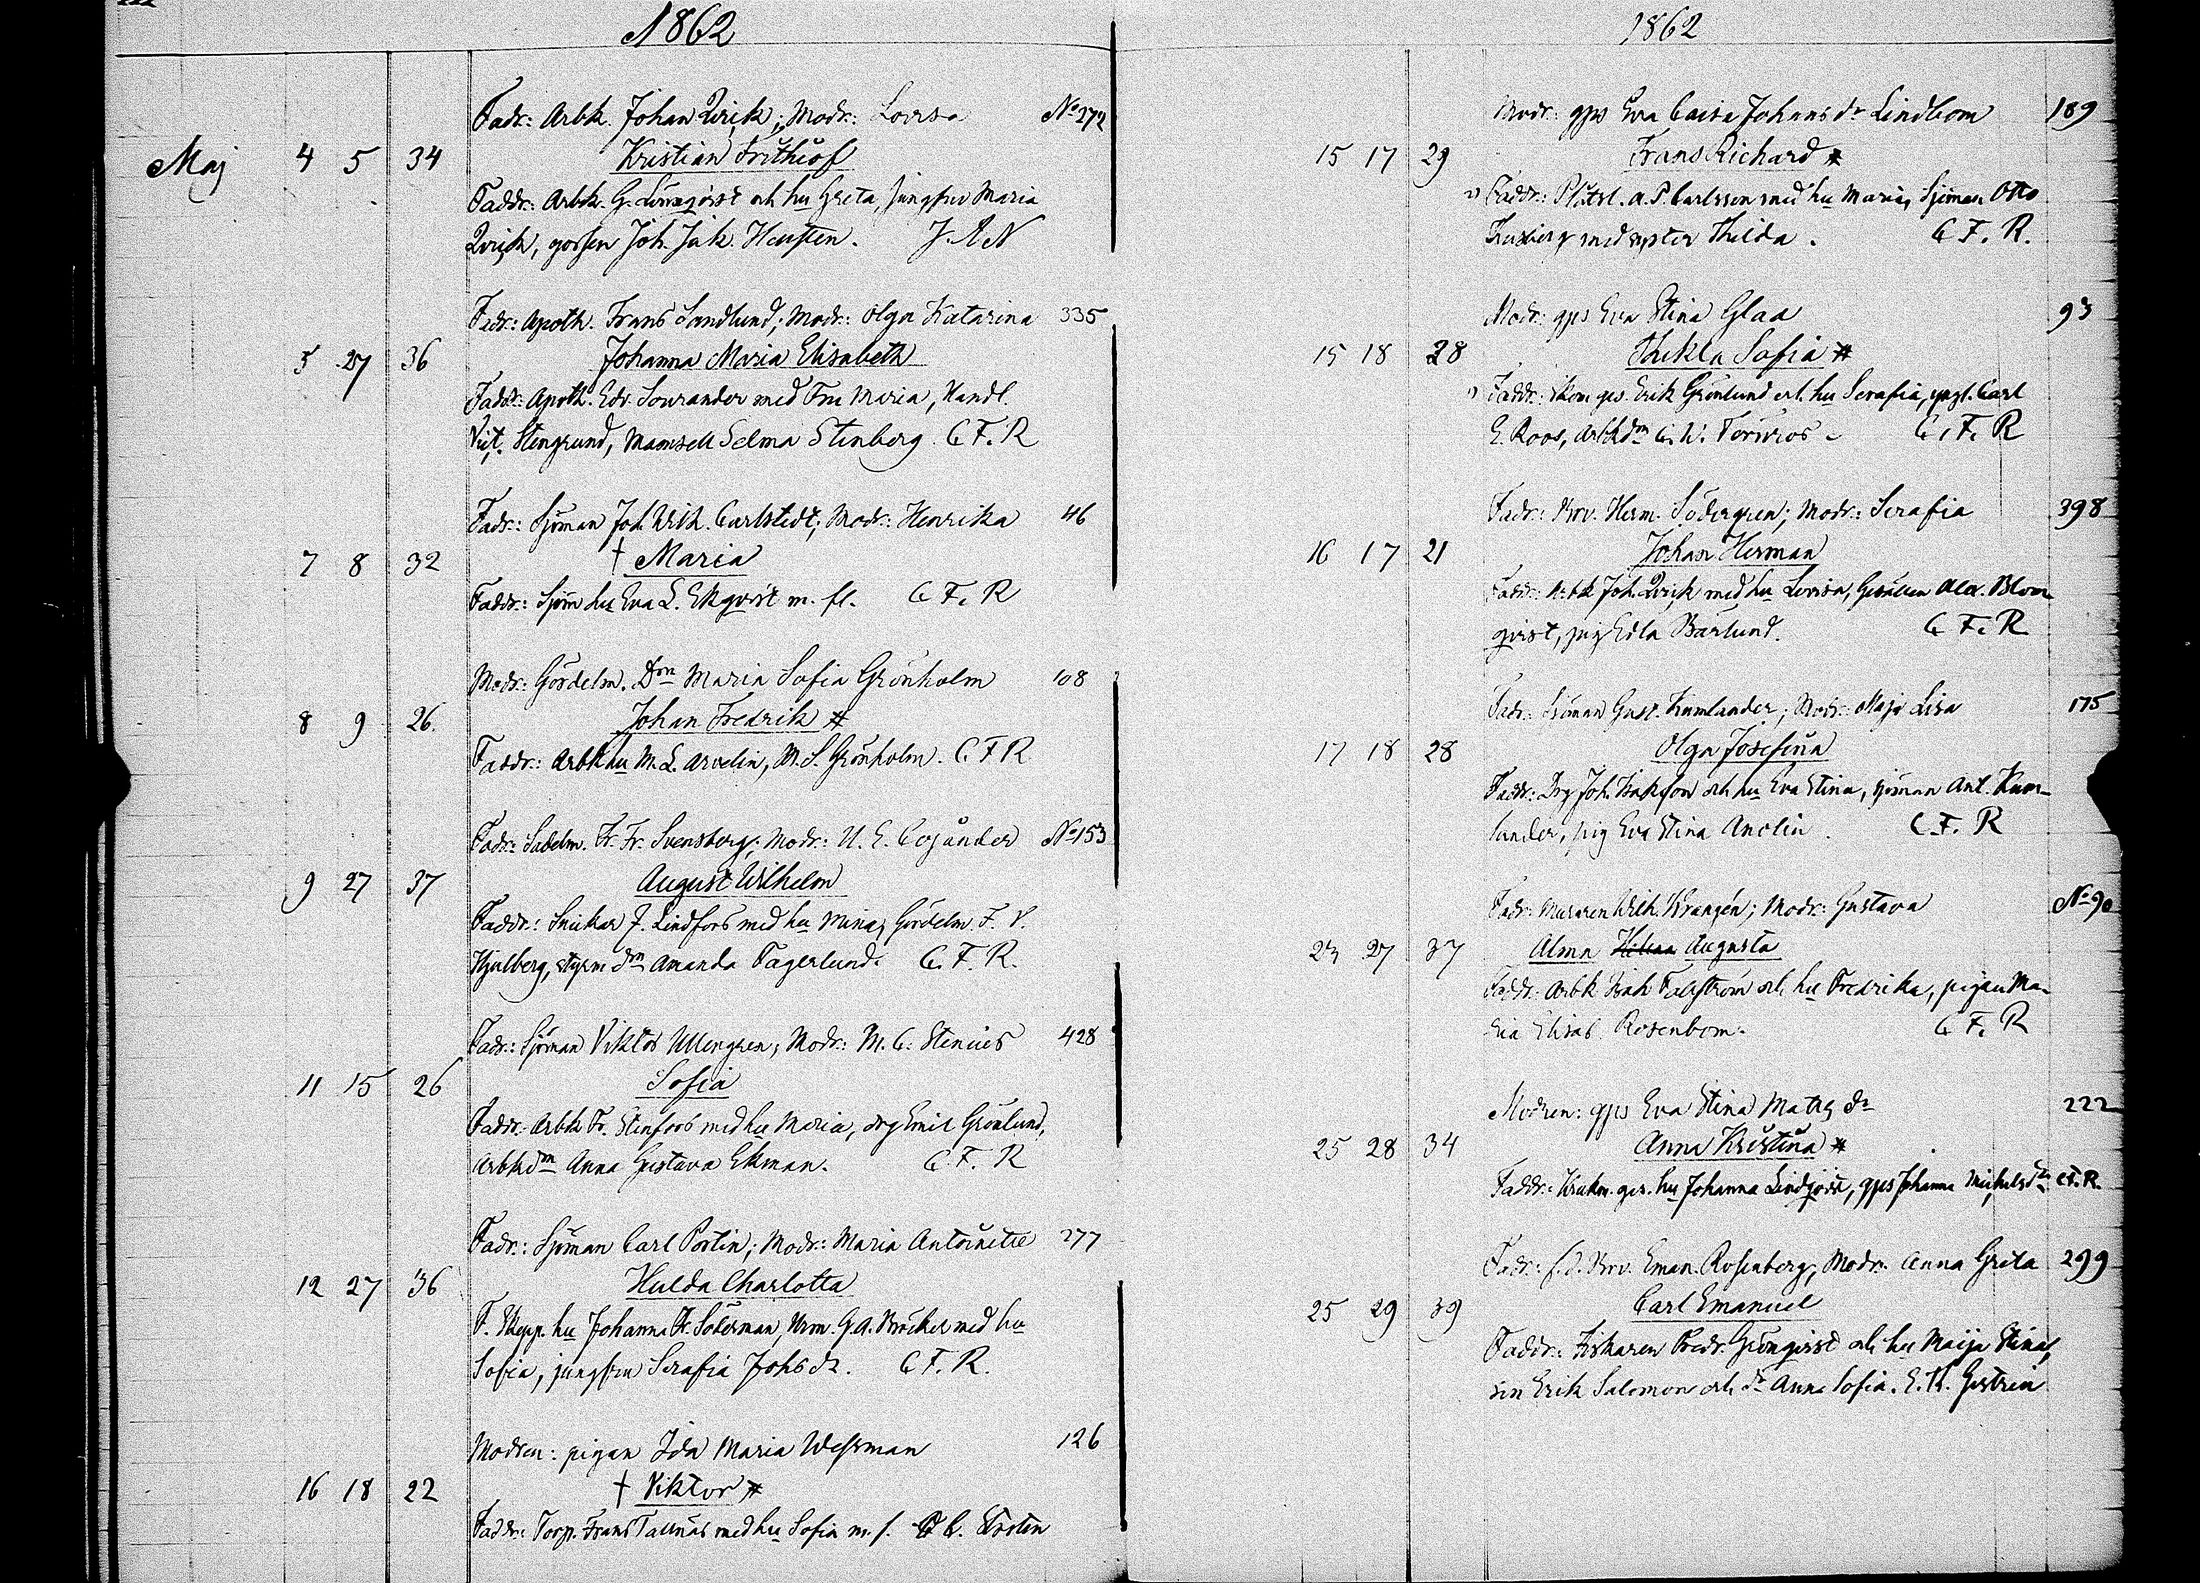 1862
Fadr: Arbk. Johan Qvick; Modr: Lovisa No 272
Maj 4 5 34 Kristian Frithiof
Faddr: Arbk. G. Lindqvist och hu Greta, jungfru Maria
Qvick, gossen Joh. Jak. Hensten. J. A N
Fadr: Apoth. Frans Sandlund; Modr: Olga Katarina 335
5 27 36 Johanna Maria Elisabeth
Faddr: Apoth. Edv. Sourander med Fru Maria, Handl.
Vict. Stengrund, Mamsell Selma Stenberg. C. F. R
Fadr: Sjöman Joh. Wilh. Carlstedt; Modr: Henrika 46
7 8 32 † Maria
Faddr: Sjöm hu Eva L. Ekqvist m. fl. C. F. R
Modr: Gördelm. Drn Maria Sofia Grönholm 108
8 9 26. Johan Fredrik *
Faddr: Arbk hu M. L. Arvelin, M. S. Grönholm. C F R
Fadr: Sadelm. Fr. Fr. Svensberg; Modr: U. E. Cojander No 153
9 27 37 August Wilhelm
Faddr: Snickar J. Lindfors med hu Mina, Gördelm. F. V.
Hjulberg, styrm drn Amanda Fagerlund. C. F. R.
Fadr: Sjöman Viktor Ullengren; Modr: M. C. Stenius 428
11 15 26 Sofia
Faddr: Arbk Fr. Stenfors med hu Maria, drg Emil Grönlund,
Arbk drn Anna Gustava Ekman. C. F. R
Fadr: Sjöman Carl Portin; Modr: Maria Antoinette 277
12 27 36 Hulda Charlotta
F. Skepp. hu Johanna Fr. Söderman, G. A. med hu
Sofia, jungfru Serafia Johsdr. C F. R.
Modren: pigan Ida Maria Wessman 126
16 18 22 † Viktor *
Faddr: Torp. Frans Tallnäs med hu Sofia m. f.
1862
Modr: gps Eva Caisa Johansdr Lindbom 189
15 17 29 Frans Richard *
Faddr: A. P. Carlsson med hu Maria, Sjöman Otto
med syster Thilda. C F. R.
Modr: gps Eva Stina Glaa 93
15 18 28 Thekla Sofia *
Faddr: Skom ges. Erik Grönlund och hu Serafia, yngl. Carl
E. Roos, Arbkdrn C. W. Törnroos. C. F. R
Fadr: Herm. Södergren; Modr: Serafia 398
16 17 21 Johan Herman
Faddr: Arbk Joh. Qvick med hu Lovisa, Gesällen Alex. Blom-
qvist, pig Edla Barlund. C F. R
Fadr: Sjöman Gust. Kumlander; Modr: Maja Lisa 175
17 18 28 Olga Josefina
Faddr: Drg Joh. Isaksson och hu Eva Stina, sjöman Ant. Kum-
lander, pig Eva Stina Anolin. C. F. R
Fadr: Muraren Wilh. Krangén; Modr: Gustava No 90
23 27 37 Alma Hilma Augusta
Faddr: Arbk Isak Fallström och hu Fredrika, pigan Ma-
ria Elisab Rosenbom. C F. R
Modren: gps Eva Stina Matts dr 222
25 28 34 Anna Kristina *
Faddr: ges. hu Johanna Lindqvist, gps Johanna Michelsdr C.F.R.
Fadr: f. d. Eman. Rosenberg; Modr: Anna Greta 299
25 29 39 Carl Emanuel
Faddr: Fiskaren Fredr. Grönqvist och hu Maija Stina,
son Erik Salomon och dr Anna Sofia. E. K. Gestrin